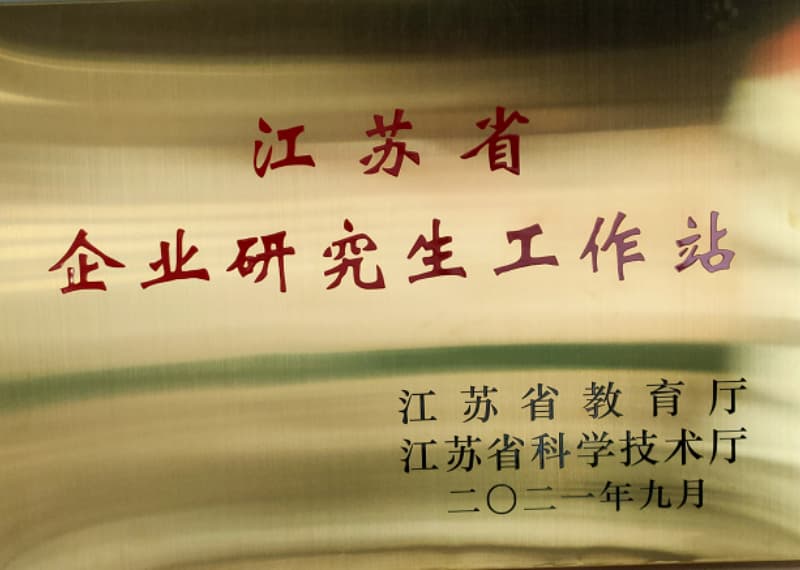 江苏省
企业研究生工作站
江苏省教育厅
江苏省科学技术厅
二〇二一年九月